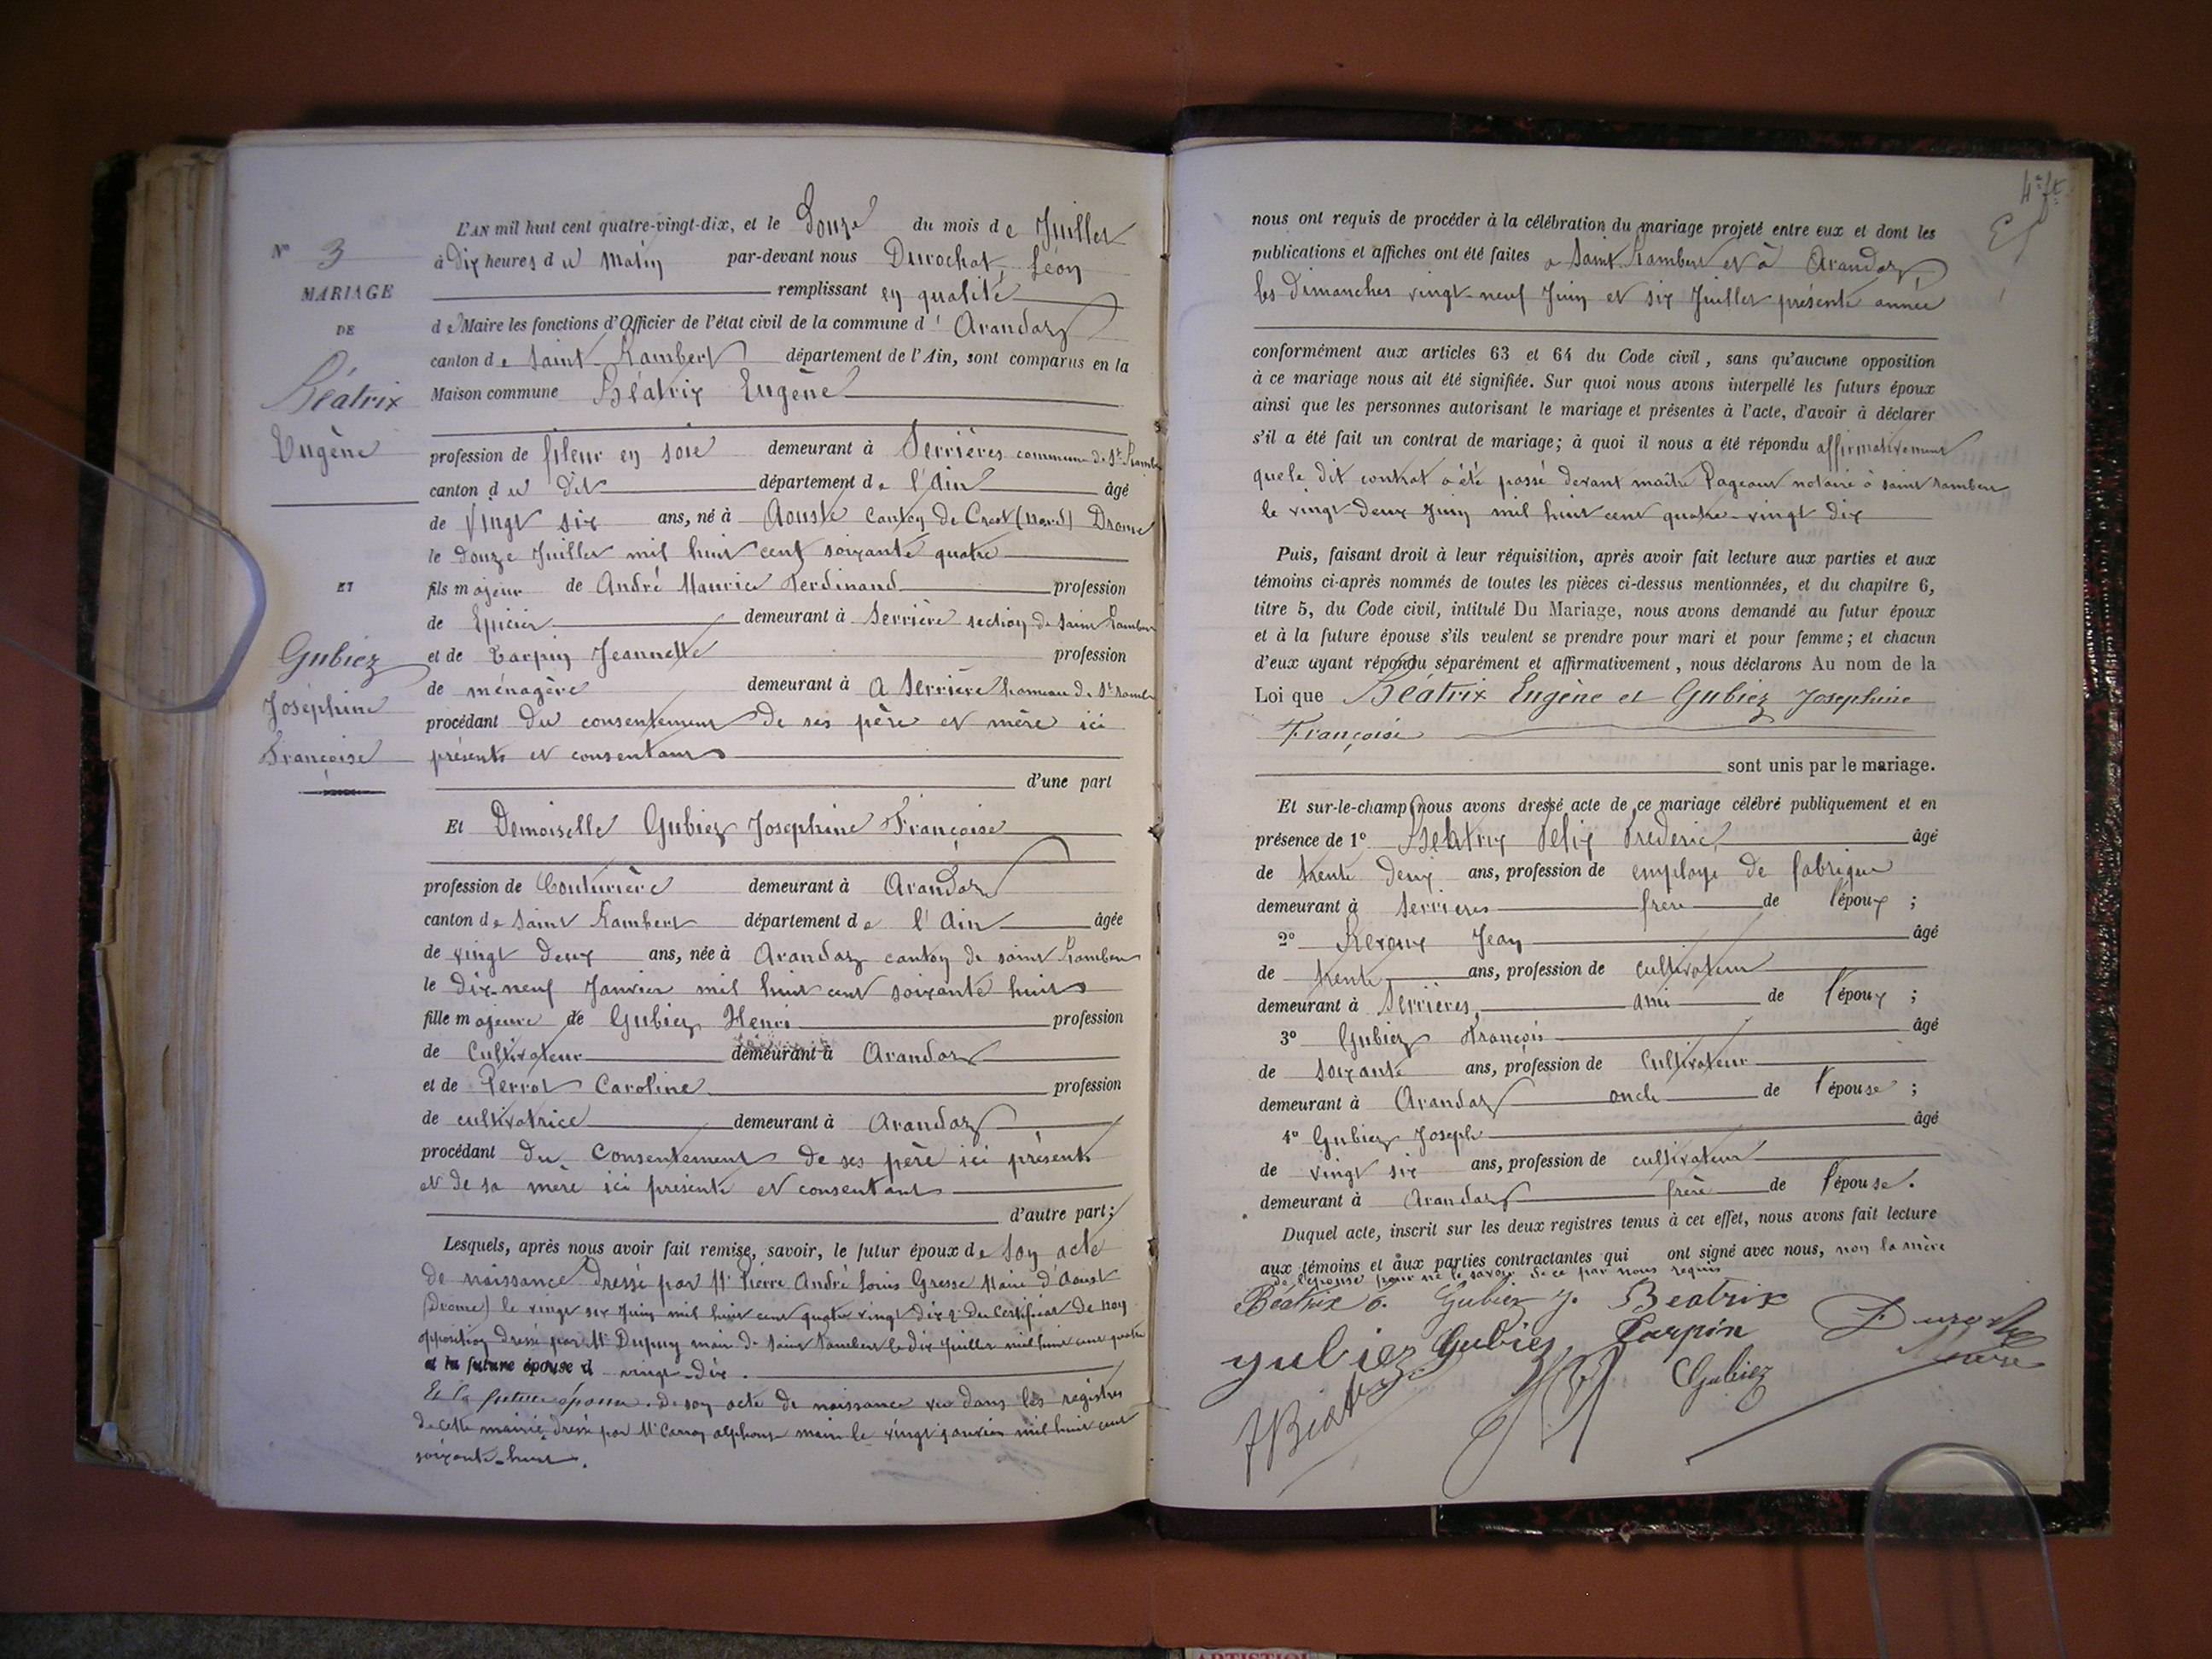 N° 3
MARIAGE
DE
Béatrix
Eugène
ET
Gubiez
Joséphine
Françoise
L'AN mil huit cent quatre-vingt-dix, et le Douze du mois de Juillet
à dix heures du Matin par-devant nous Durochat, Léon
remplissant en qualité
de Maire les fonctions d'Officier de l'état civil de la commune d' Arandaz
canton de Saint Rambert département de l'Ain, sont comparus en la
Maison commune Béatrix Eugène
profession de fileur en soie demeurant à Serrières commune de St Rambert
canton du dit département de l'Ain âgé
de vingt six ans, né à Aouste Canton de Crest (nord) Drome
le douze Juillet mil huit cent soixante quatre
fils majeur de André Maurice Ferdinand profession
de Epicier demeurant à Serrière section de Saint Rambert
et de Tarpin Jeannette profession
de ménagère demeurant à a Serrière hameau de St Rambert
procédant du consentement de ses père et mère ici
présents et consentants
d'une part
Et Demoiselle Gubiez Josephine Françoise
profession de Couturière demeurant à Arandaz
canton de Saint Rambert département de l'Ain âgée
de vingt deux ans, née à Arandaz canton de saint Rambert
le dix-neuf Janvier mil huit cent soixante huit
fille majeure de Gubiez Henri profession
de Cultivateur demeurant à Arandaz
et de Perrot Caroline profession
de cultivatrice demeurant à Arandaz
procédant du Consentement de ses père ici présent
et de sa mère ici présente et consentant
d'autre part;
Lesquels, après nous avoir fait remise, savoir, le futur époux de son acte
de naissance dressé par Mr Pierre André Louis Gresse Maire d'Aoust
(Drome) le vingt six Juin mil huit cent quatre vingt dix 2° du Certificat de non
opposition dressé par Mr Dupuy maire de Saint Rambert le dix Juillet mil huit cent quatre
et la future épouse d vingt-dix.
Et la future épouse. de son acte de naissance vu dans les registres
de cette mairie, dressé par Mr Carron alphonse maire le vingt janvier mil huit cent
soixante-huit.
4e ft.
nous ont requis de procéder à la célébration du mariage projeté entre eux et dont les
publications et affiches ont été faites a Saint Rambert et à Arandaz
les Dimanches vingt-neuf Juin et six Juillet présente année
conformément aux articles 63 et 64 du Code civil, sans qu'aucune opposition
à ce mariage nous ait été signifiée. Sur quoi nous avons interpellé les futurs époux
ainsi que les personnes autorisant le mariage et présentes à l'acte, d'avoir à déclarer
s'il a été fait un contrat de mariage; à quoi il nous a été répondu affirmativement
que le dit contrat a été passé devant maître Pageaut notaire à saint Rambert
le vingt deux Juin mil huit cent quatre-vingt dix
Puis, faisant droit à leur réquisition, après avoir fait lecture aux parties et aux
témoins ci-après nommés de toutes les pièces ci-dessus mentionnées, et du chapitre 6,
titre 5, du Code civil, intitulé Du Mariage, nous avons demandé au futur époux
et à la future épouse s'ils veulent se prendre pour mari et pour femme; et chacun
d'eux ayant répondu séparément et affirmativement, nous déclarons Au nom de la
Loi que Béatrix Eugène et Gubiez Josephine
Françoise
sont unis par le mariage.
Et sur-le-champ nous avons dressé acte de ce mariage célébré publiquement et en
présence de 1° Béatrix Félix Frederic âgé
de trente deux ans, profession de employé de fabrique
demeurant à Serrières frère de l'époux ;
2° Reroux Jean âgé
de trente ans, profession de cultivateur
demeurant à Serrières, ami de l'époux ;
3° Gubiez François âgé
de soixante ans, profession de Cultivateur
demeurant à Arandaz oncle de l'épouse ;
4° Gubiez Joseph âgé
de vingt six ans, profession de cultivateur
demeurant à Arandaz frère de l'épouse.
Duquel acte, inscrit sur les deux registres tenus à cet effet, nous avons fait lecture
aux témoins et aux parties contractantes qui ont signé avec nous, non la mère
de l'épouse pour ne le savoir de ce par nous requis
Béatrix E. Gubiez J. Beatrix
gubiez Gubiez Tarpin Durochat
Maire
Gubiez
F Béatrix